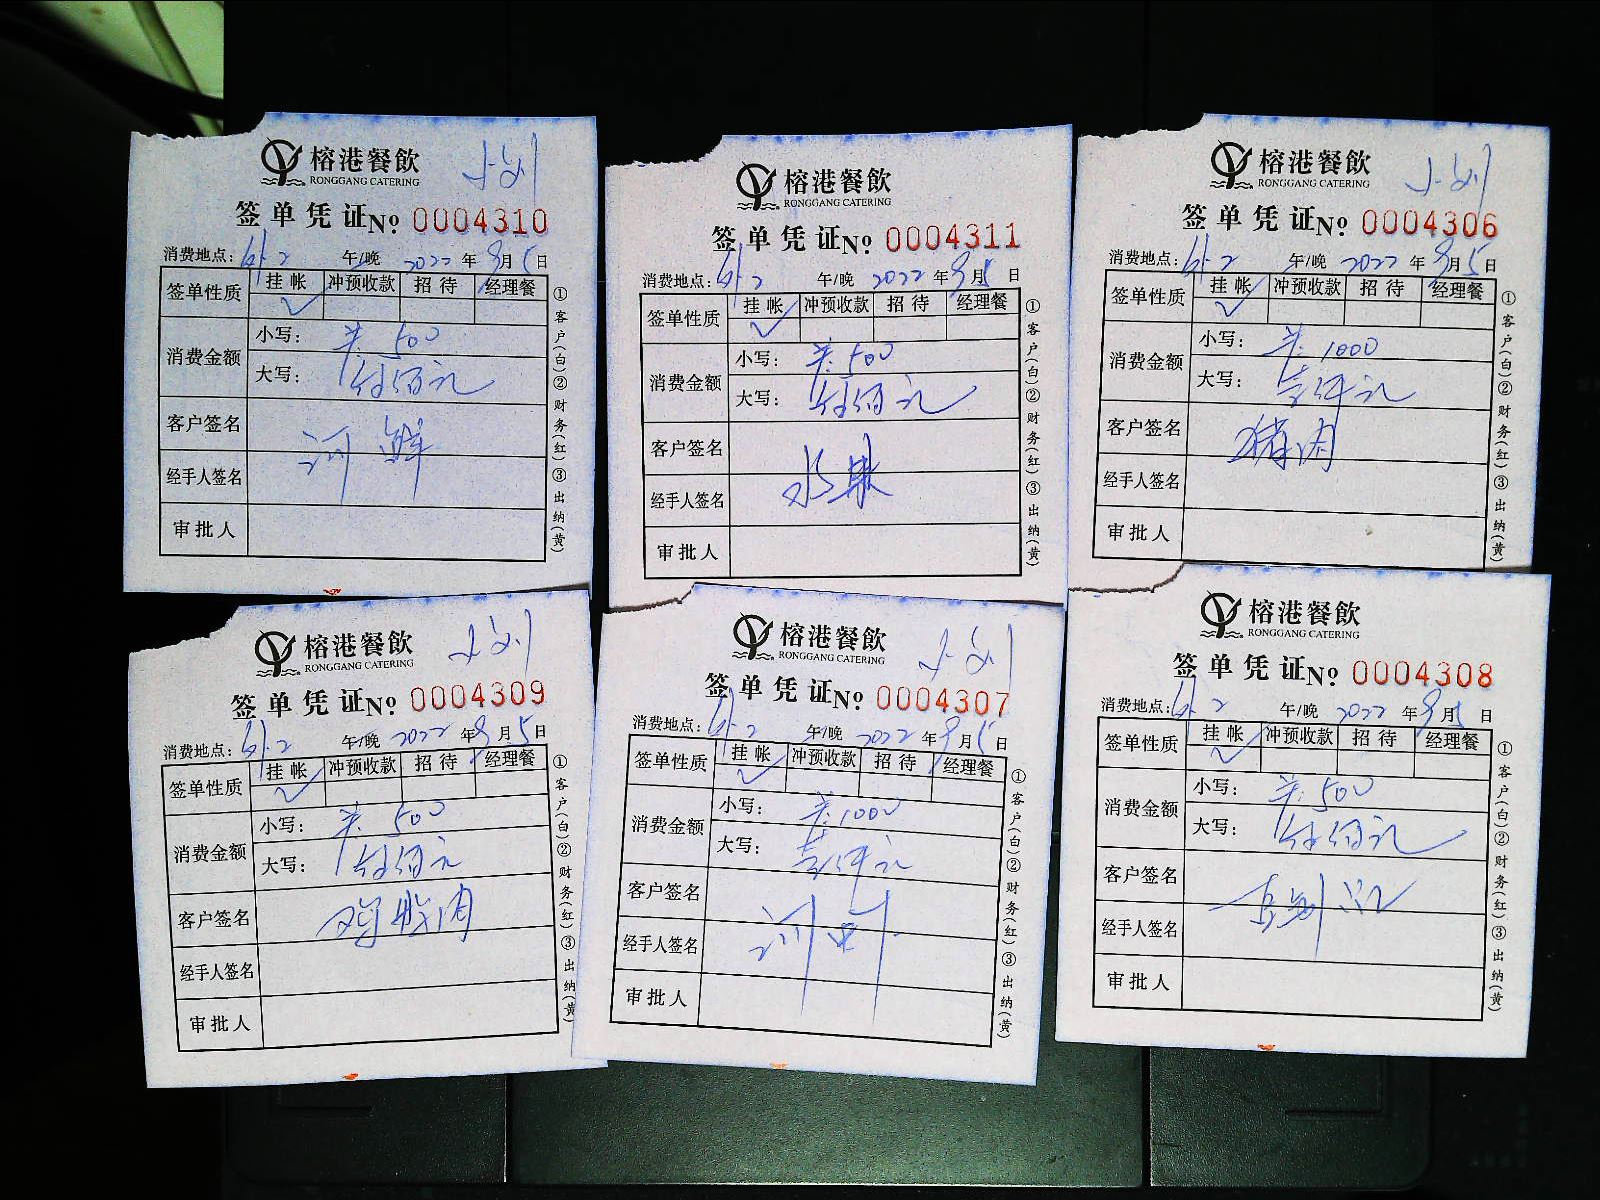 榕港餐飲
RONGGANG CATERING
小刘
签单凭证 № 0004310
消费地点: 午/晚 2022年9月5日
签单性质 挂帐 冲预收款 招待 经理餐
✓
消费金额
小写: 500
大写: 伍佰元
客户签名
经手人签名
审批人
①客户(白)②财务(红)③出纳(黄)
榕港餐飲
RONGGANG CATERING
签单凭证 № 0004311
消费地点: 午/晚 2022年9月5日
签单性质 挂帐 冲预收款 招待 经理餐
✓
消费金额
小写: 500
大写: 伍佰元
客户签名
水果
经手人签名
审批人
①客户(白)②财务(红)③出纳(黄)
榕港餐飲
RONGGANG CATERING
小刘
签单凭证 № 0004306
消费地点: 午/晚 2022年9月5日
签单性质 挂帐 冲预收款 招待 经理餐
✓
消费金额
小写: 1000
大写: 壹仟元
客户签名
猪肉
经手人签名
审批人
①客户(白)②财务(红)③出纳(黄)
榕港餐飲
RONGGANG CATERING
小刘
签单凭证 № 0004309
消费地点: 午/晚 2022年9月5日
签单性质 挂帐 冲预收款 招待 经理餐
✓
消费金额
小写: 500
大写: 伍佰元
客户签名
鸡鸭肉
经手人签名
审批人
①客户(白)②财务(红)③出纳(黄)
榕港餐飲
RONGGANG CATERING
小刘
签单凭证 № 0004307
消费地点: 午/晚 2022年9月5日
签单性质 挂帐 冲预收款 招待 经理餐
✓
消费金额
小写: 1000
大写: 壹仟元
客户签名
经手人签名
审批人
①客户(白)②财务(红)③出纳(黄)
榕港餐飲
RONGGANG CATERING
签单凭证 № 0004308
消费地点: 午/晚 2022年9月5日
签单性质 挂帐 冲预收款 招待 经理餐
✓
消费金额
小写: 500
大写: 伍佰元
客户签名
经手人签名
审批人
①客户(白)②财务(红)③出纳(黄)